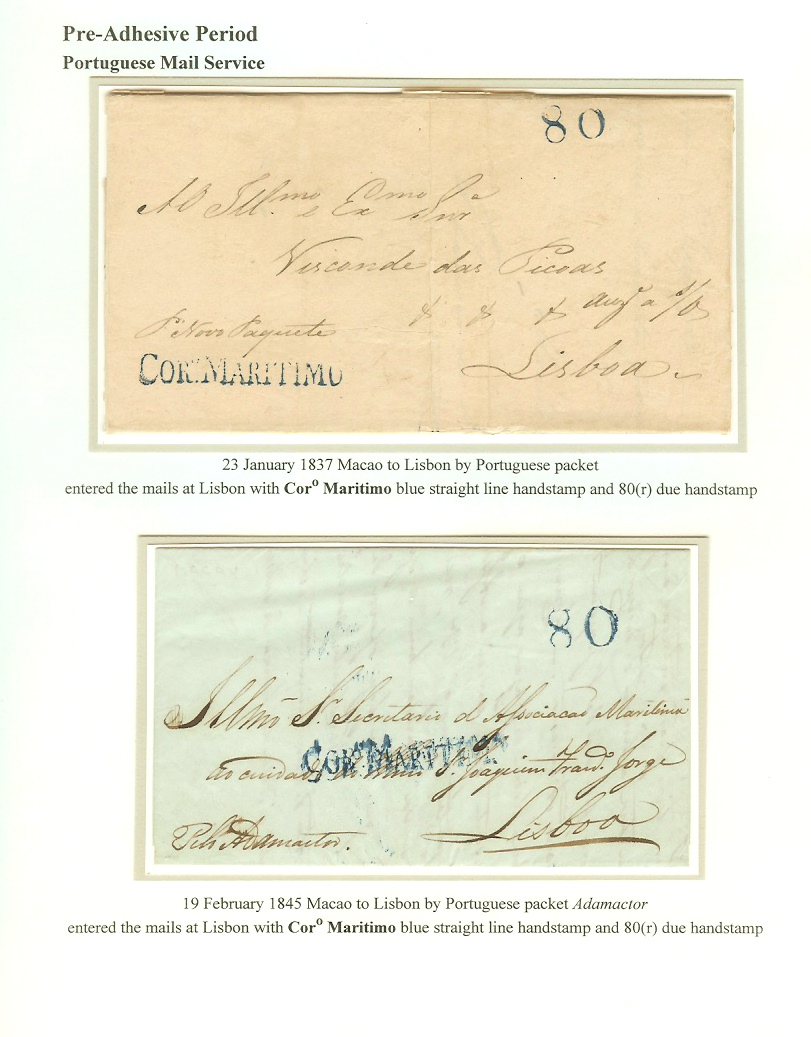 Pre-Adhesive Period
Portuguese Mail Service
80
Ao Illmo e Exmo Snr
Visconde das Picoas
& & &
Pr Novo Paquete
COR.º MARITIMO
Lisboa
23 January 1837 Macao to Lisbon by Portuguese packet
entered the mails at Lisbon with Corº Maritimo blue straight line handstamp and 80(r) due handstamp
80
Illmo Sr. Secretario d Associacao Maritima
COR.º MARITIMO
ao cuidado do Sr. Joaquim Frando. Jorge
Lisboa
Pelo Adamactor.
19 February 1845 Macao to Lisbon by Portuguese packet Adamactor
entered the mails at Lisbon with Corº Maritimo blue straight line handstamp and 80(r) due handstamp